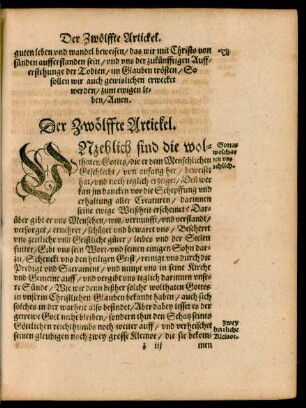 Der Zwölffte Artickel.
guten leben vnd wandel beweisen / das wir mit Christo von
sünden aufferstanden sein / vnd vns der zukünfftigen Auff-
erstehunge der Todten / im Glauben trösten / So
sollen wir auch gewislichen erwecket
werden / zum ewigen le-
ben / Amen.
Der Zwölffte Artickel.
Vnzehlich sind die wol-
thaten Gottes / die er dem Menschlichen
Geschlecht / von anfang her / beweiset
hat / vnd noch teglich erzeiget / Den wer
kan jm dancken vor die Schepffung vnd
erhaltung aller Creaturen / darinnen
seine ewige Weißheit erscheinet? Dar-
über gibt er vns Menschen / witz / vernunfft / vnd verstandt /
versorget / ernehret / schützet vnd bewaret vns / Bescheret
vns zeitliche vnd Geistliche güter / leibes vnd der Seelen
futter / Gibt vns sein Wort / vnd seinen einigen Sohn dar-
zu / Schenckt vns den heiligen Geist / reinigt vns durch die
Predigt vnd Sacrament / vnd nimpt vns in seine Kirche
vnd Gemeine auff / vnd vergibt vns teglich darinnen vnse-
re Sünde / Wie wir denn bißher solche wolthaten Gottes
in vnserm Christlichen Glauben bekandt haben / auch sich
solches in der warheit also befindet / Aber dabey lesset es der
getrewe Gott nicht bleiben / sondern thut den Schatz seines
Göttlichen reichthumbs noch weiter auff / vnd verheischet
seinen gleubigen noch zwey grosse Kleinot / die sie bekom-
men
Gottes
wolthat
ten vn-
zehlich.
Zwey
herrliche
Kleinot.
iij